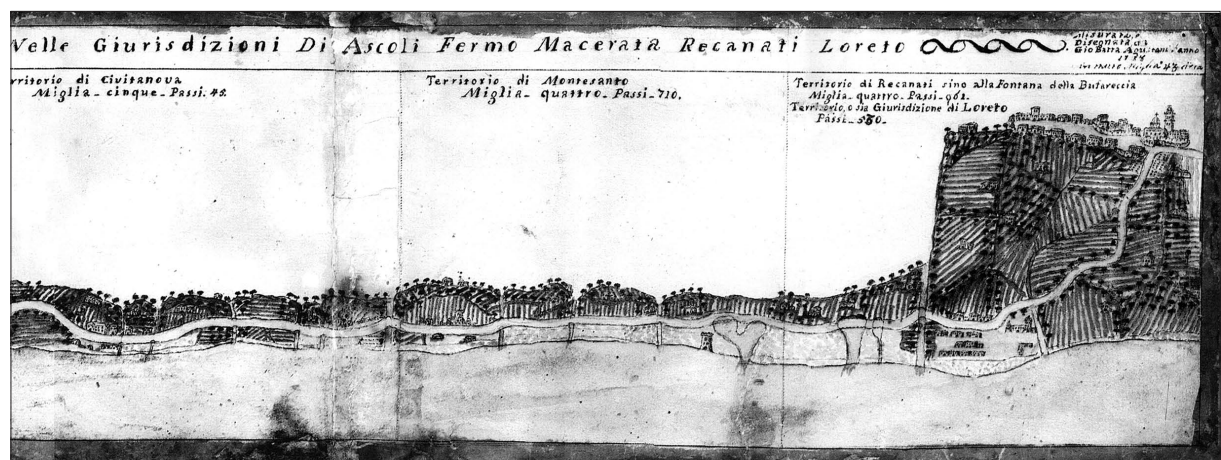 Nelle Giurisdizioni Di Ascoli Fermo Macerata Recanati Loreto
Misurata, e
Disegnata da
Gio Batta Aquitani
rritorio di Civitanova
Miglia - cinque - Passi. 45.
Territorio di Montesanto
Miglia - quattro - Passi - 710.
Territorio di Recanati sino alla Fontana della Butareccia
Miglia - quattro - Passi - 961.
Territorio, o sia Giurisdizione di Loreto
Passi - 580 -